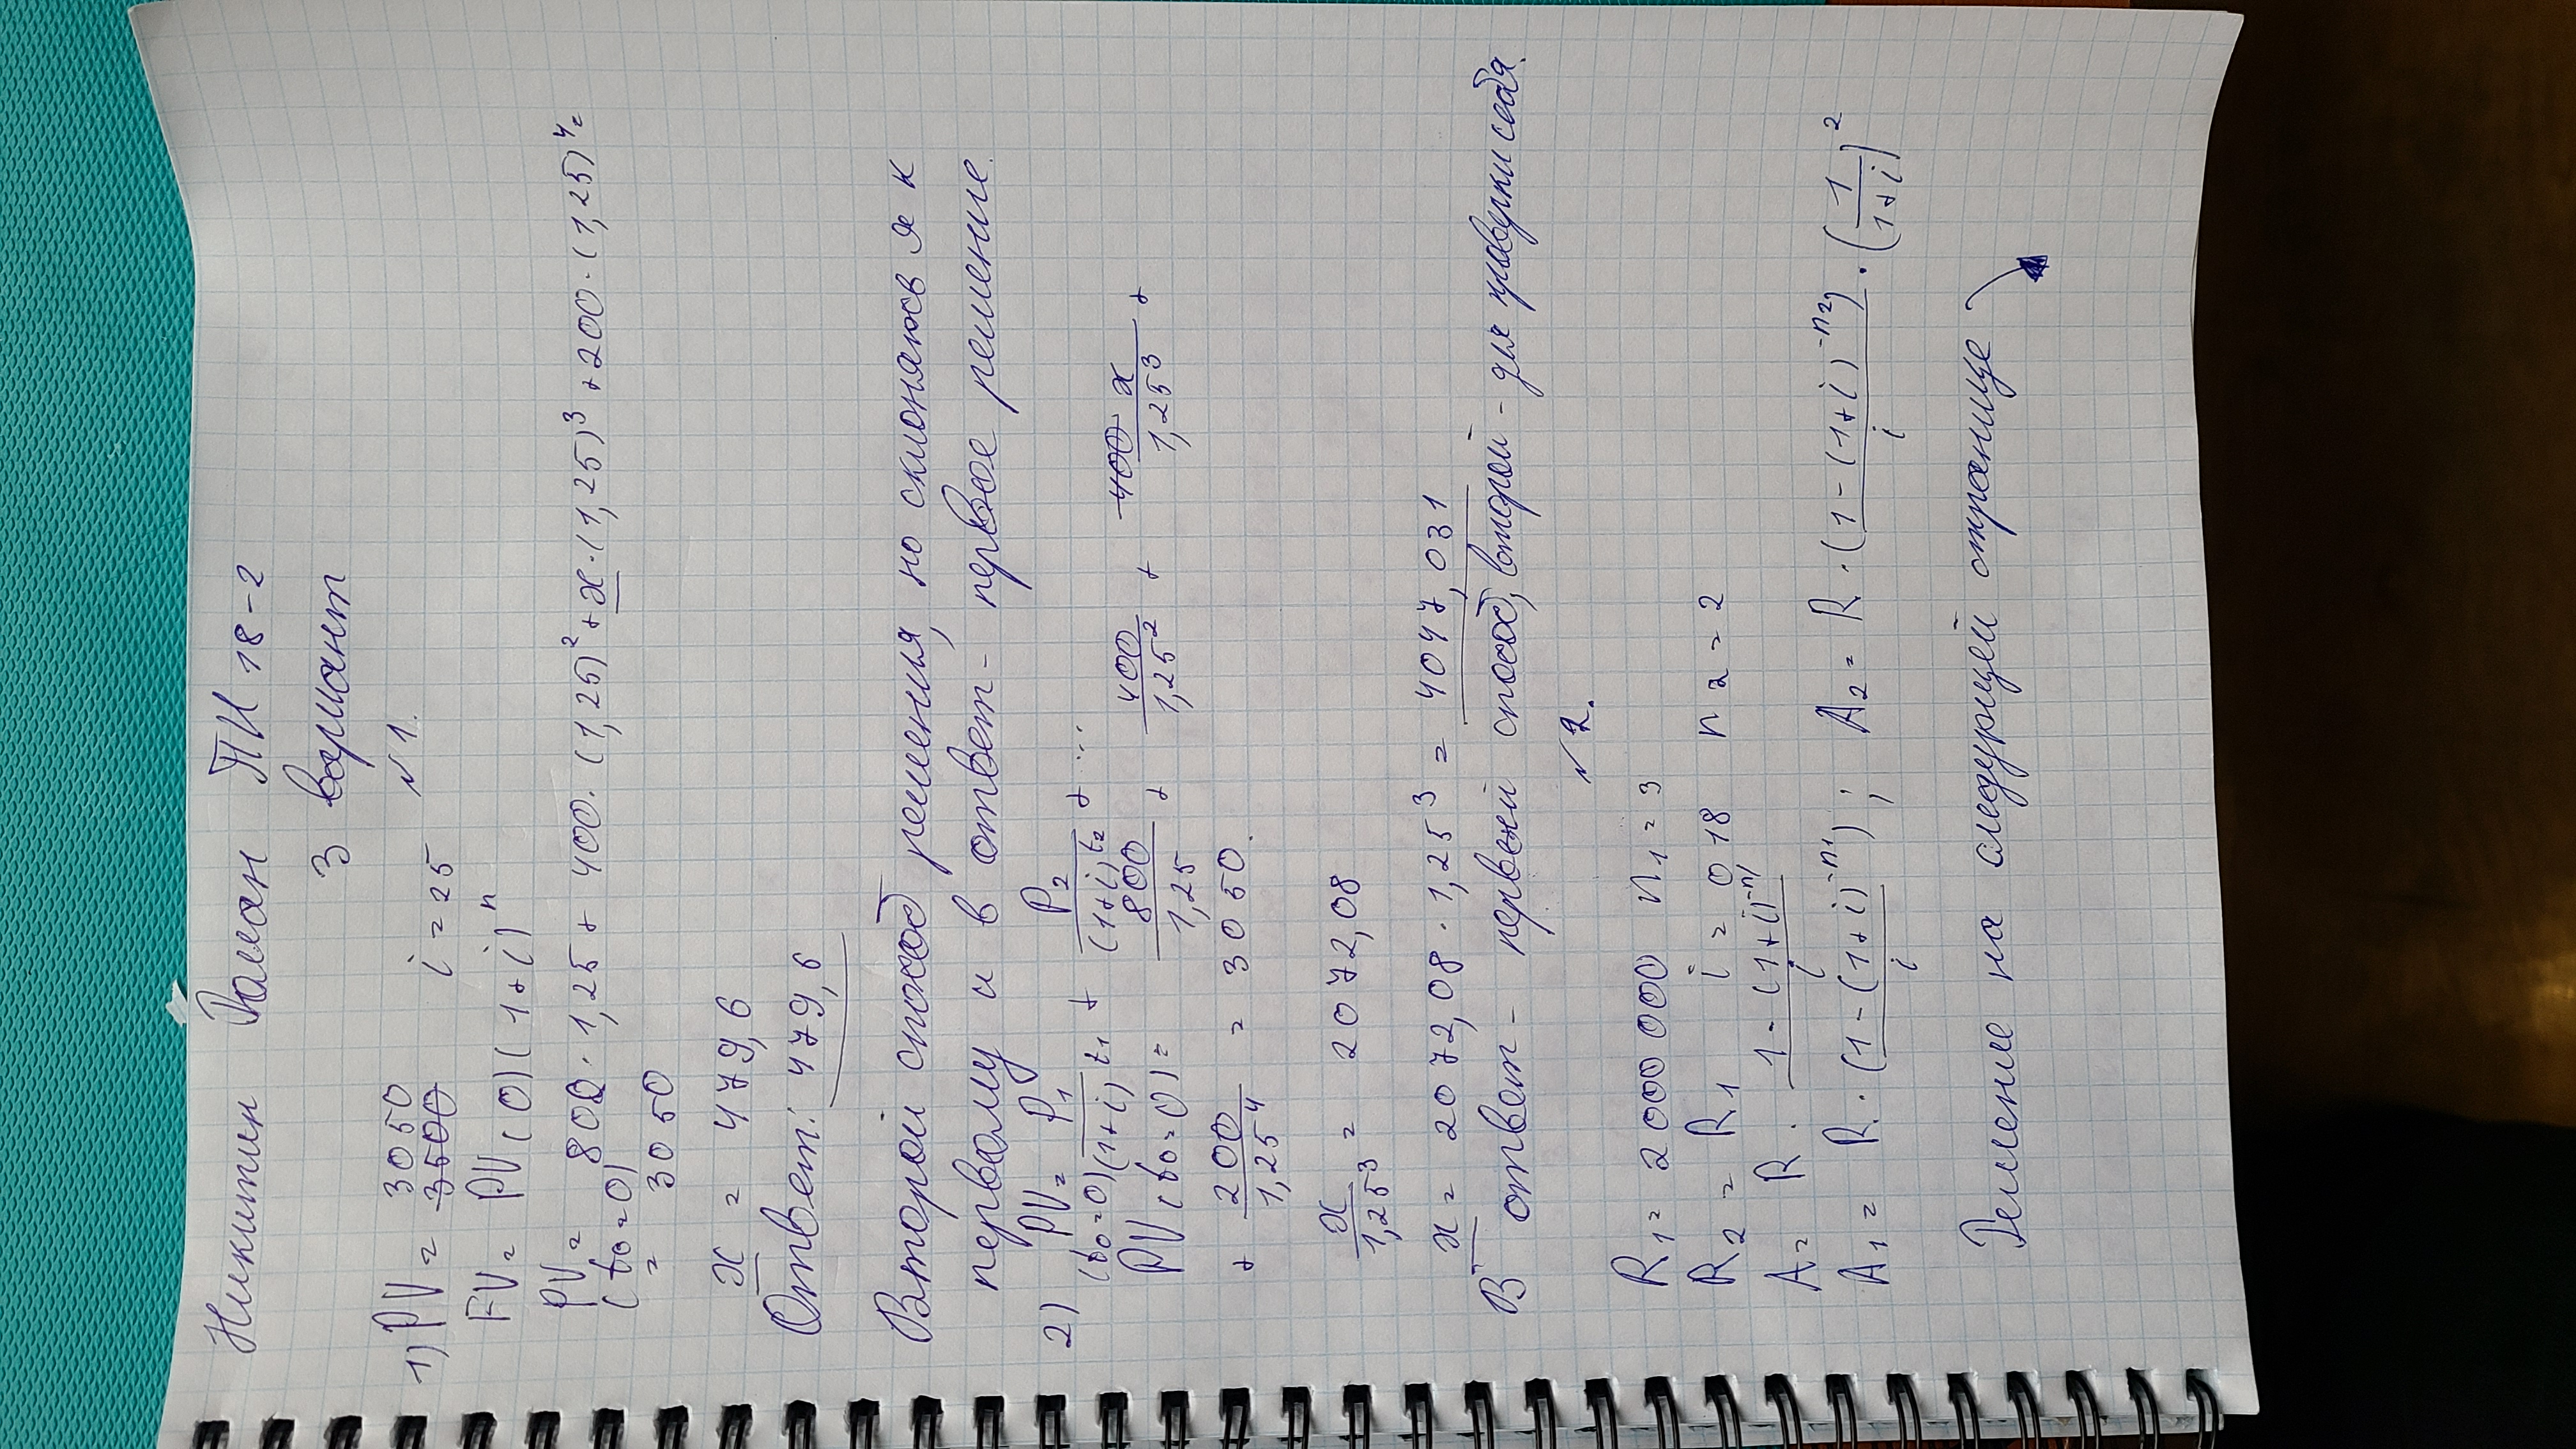 Никитин Роман ПИ 18-2
3 вариант
№1.
1) PV = 3050 i = 25
3500
FV = PV(0)(1+i)^n
PV = 800·1,25 + 400·(1,25)² + x·(1,25)³ + 200·(1,25)⁴ =
(t0=0)
= 3050
x = 479,6
Ответ: 479,6
Второй способ решения, но склоняюсь я к
первому и в ответ - первое решение.
2) PV = P1/(1+i)^t1 + P2/(1+i)^t2 + ...
(t0=0)
PV(t0=0) = 800/1,25 + 400/1,25² + 400 x/1,25³ +
+ 200/1,25⁴ = 3050.
x/1,25³ = 2072,08
x = 2072,08 · 1,25³ = 4047,031
В ответ - первый способ, второй - для проверки себя.
№2.
R1 = 2000 000 n1 = 3
R2 = R1 i = 0 18 n2 = 2
A = R · 1-(1+i)^-n/i
A1 = R · (1-(1+i)^-n1)/i ; A2 = R · (1-(1+i)^-n2)/i · (1/1+i)²
Деление на следующей странице